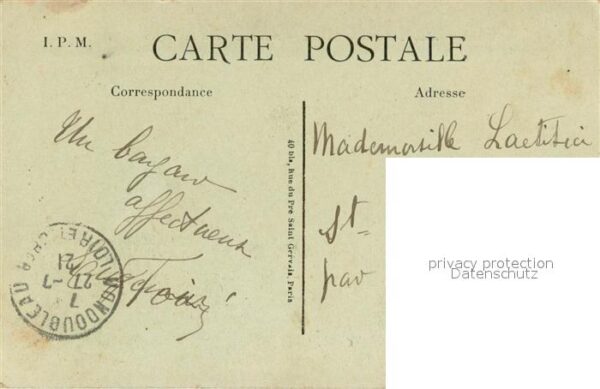 I. P. M.
CARTE POSTALE
Correspondance
Adresse
Un
affectueux
Mademoiselle Laetitia
St-
par
40 bis, Rue du Pré Saint Gervais, Paris
MONDOUBLEAU
LOIR-ET-CHER
7
27-7
21
privacy protection
Datenschutz